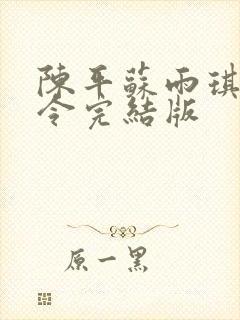 陳平蘇雨琪
令完結版
原一黑